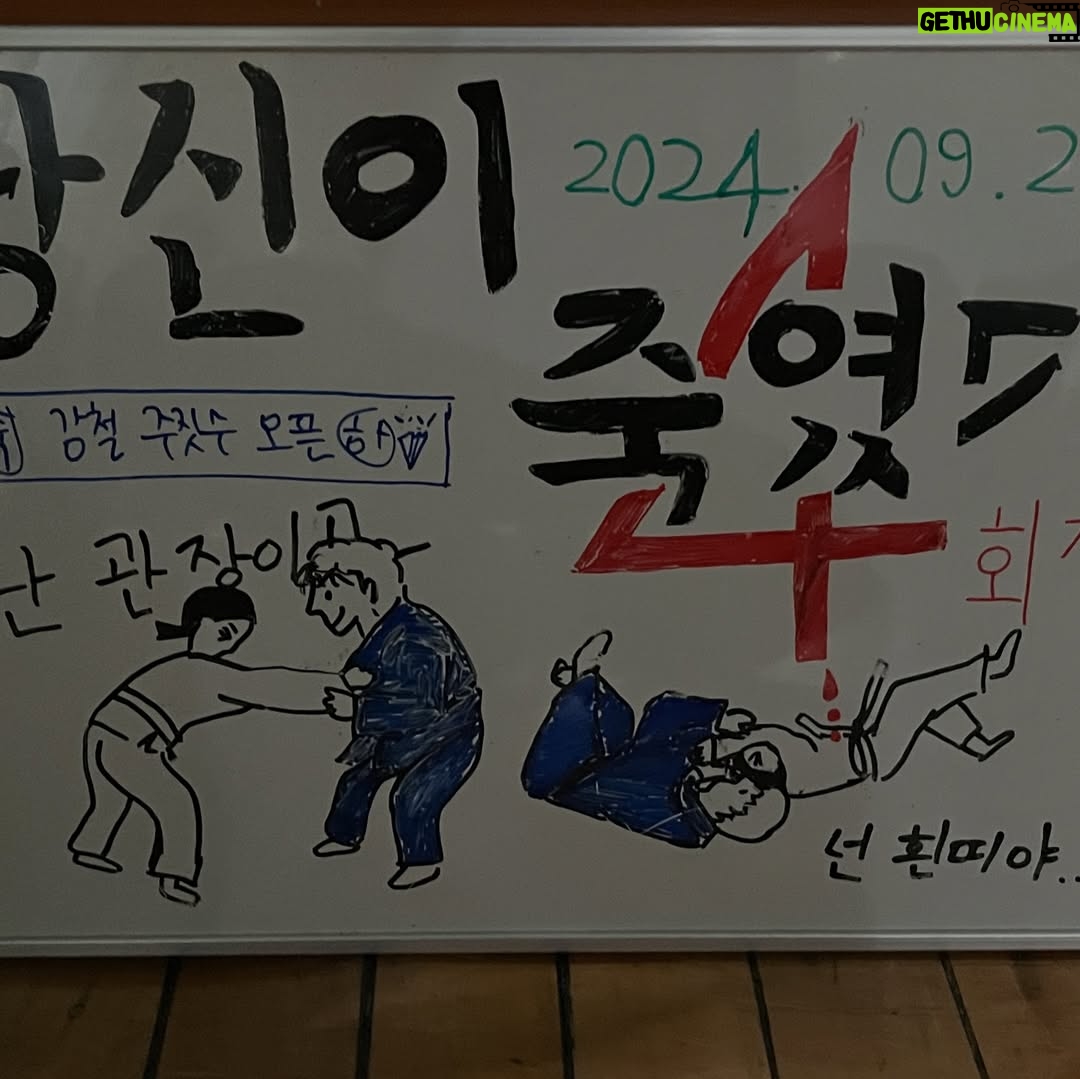 GETHUCINEMA
당신이
2024. 09. 2
죽였다
감철 주짓수 오픈
난 관장이고
회
넌 흰띠야..